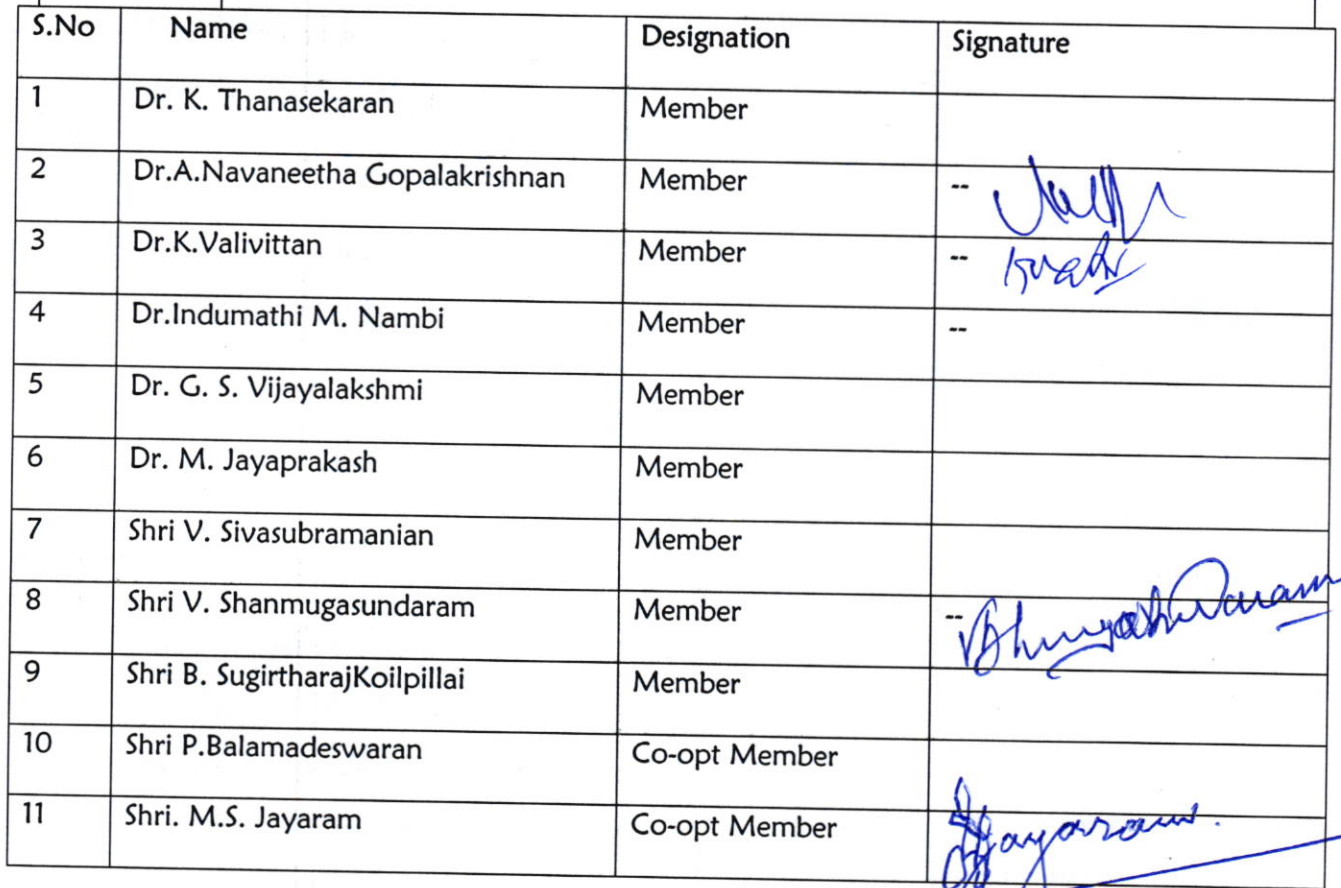 S.No Name Designation Signature
1 Dr. K. Thanasekaran Member
2 Dr.A.Navaneetha Gopalakrishnan Member --
3 Dr.K.Valivittan Member --
4 Dr.Indumathi M. Nambi Member --
5 Dr. G. S. Vijayalakshmi Member
6 Dr. M. Jayaprakash Member
7 Shri V. Sivasubramanian Member
8 Shri V. Shanmugasundaram Member --
9 Shri B. SugirtharajKoilpillai Member
10 Shri P.Balamadeswaran Co-opt Member
11 Shri. M.S. Jayaram Co-opt Member